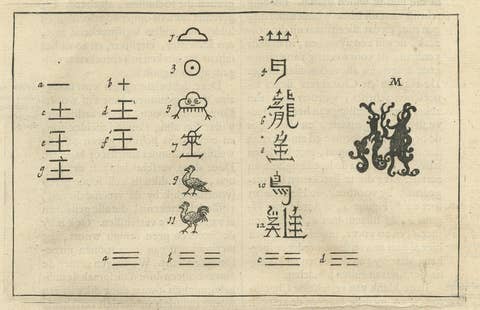 1
2
3 ☉
4
M
a 一
b 十
5
6 龍
c 土
d 王
7
8 隹
e 王
f 王
g 主
9
10 鳥
11
12 雞
a ☰
b ☷
c
d